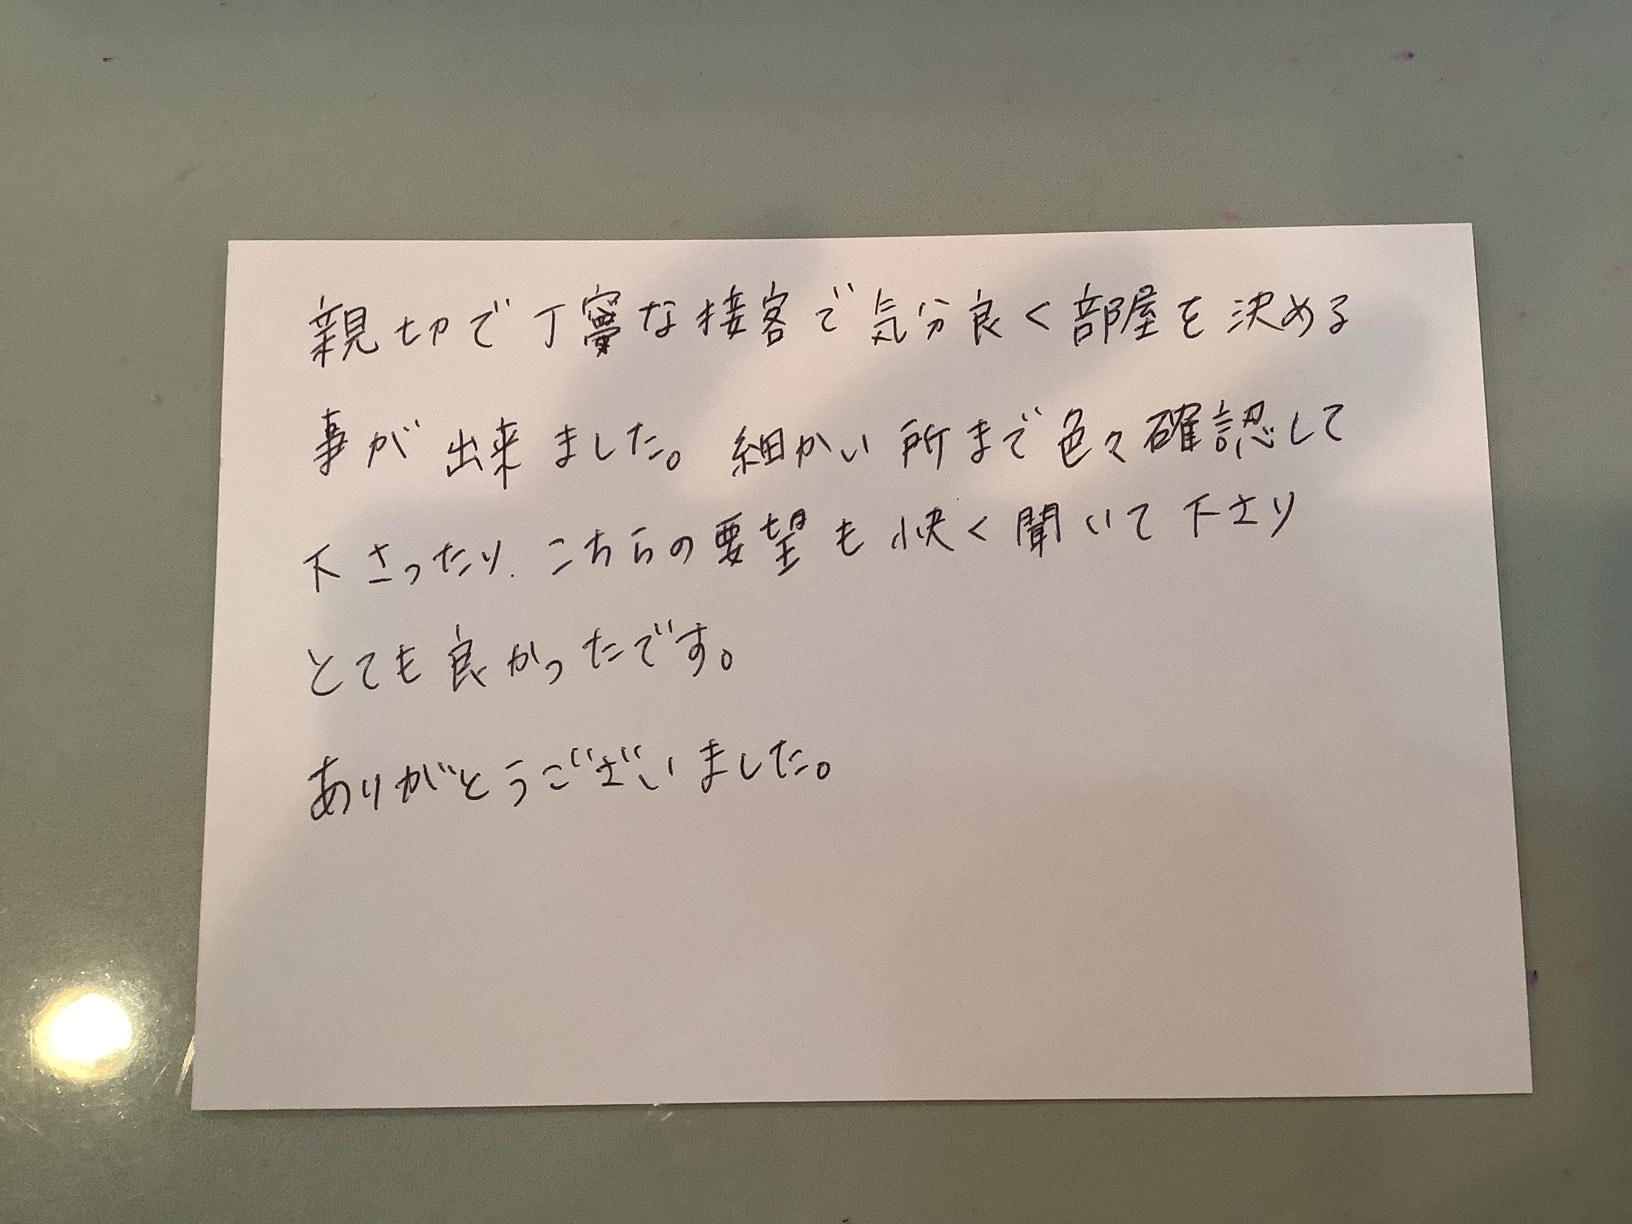 親切で丁寧な接客で気分良く部屋を決める
事が出来ました。細かい所まで色々確認して
下さったり、こちらの要望も快く聞いて下さり
とても良かったです。
ありがとうございました。